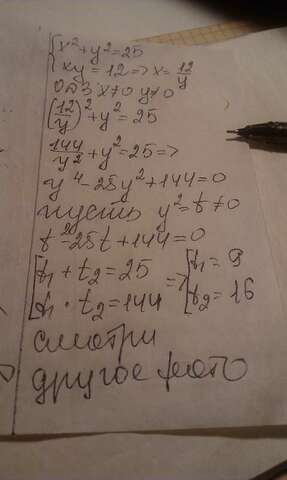 {x² + y² = 25
{xy = 12 => x = 12/y
ОДЗ x≠0 y≠0
(12/y)² + y² = 25
144/y² + y² = 25 =>
y⁴ - 25y² + 144 = 0
пусть y² = t ≠ 0
t² - 25t + 144 = 0
[t₁ + t₂ = 25 => [t₁ = 9
[t₁ · t₂ = 144 [t₂ = 16
смотри
другое фото